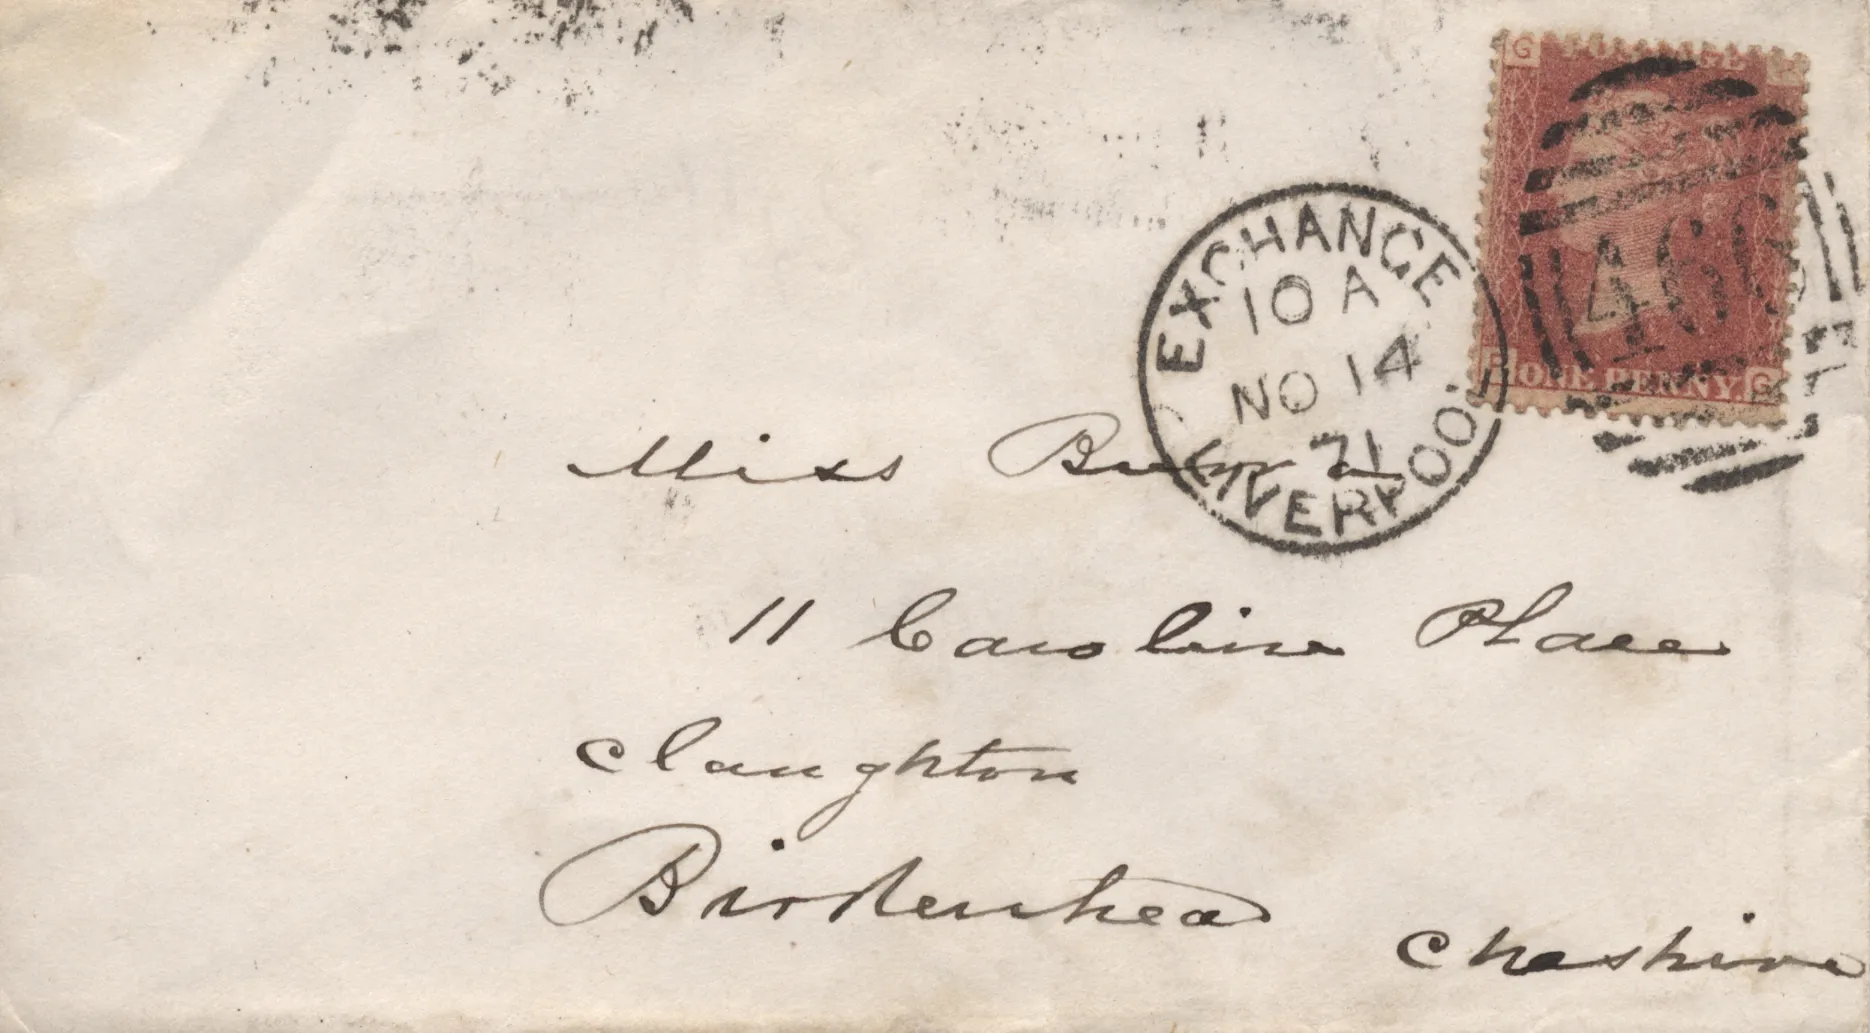 POSTAGE
G
466
ONE PENNY.
G
EXCHANGE
10 A
NO 14
71
LIVERPOOL
Miss
11 Caroline Place
Claughton
Birkenhead
Cheshire